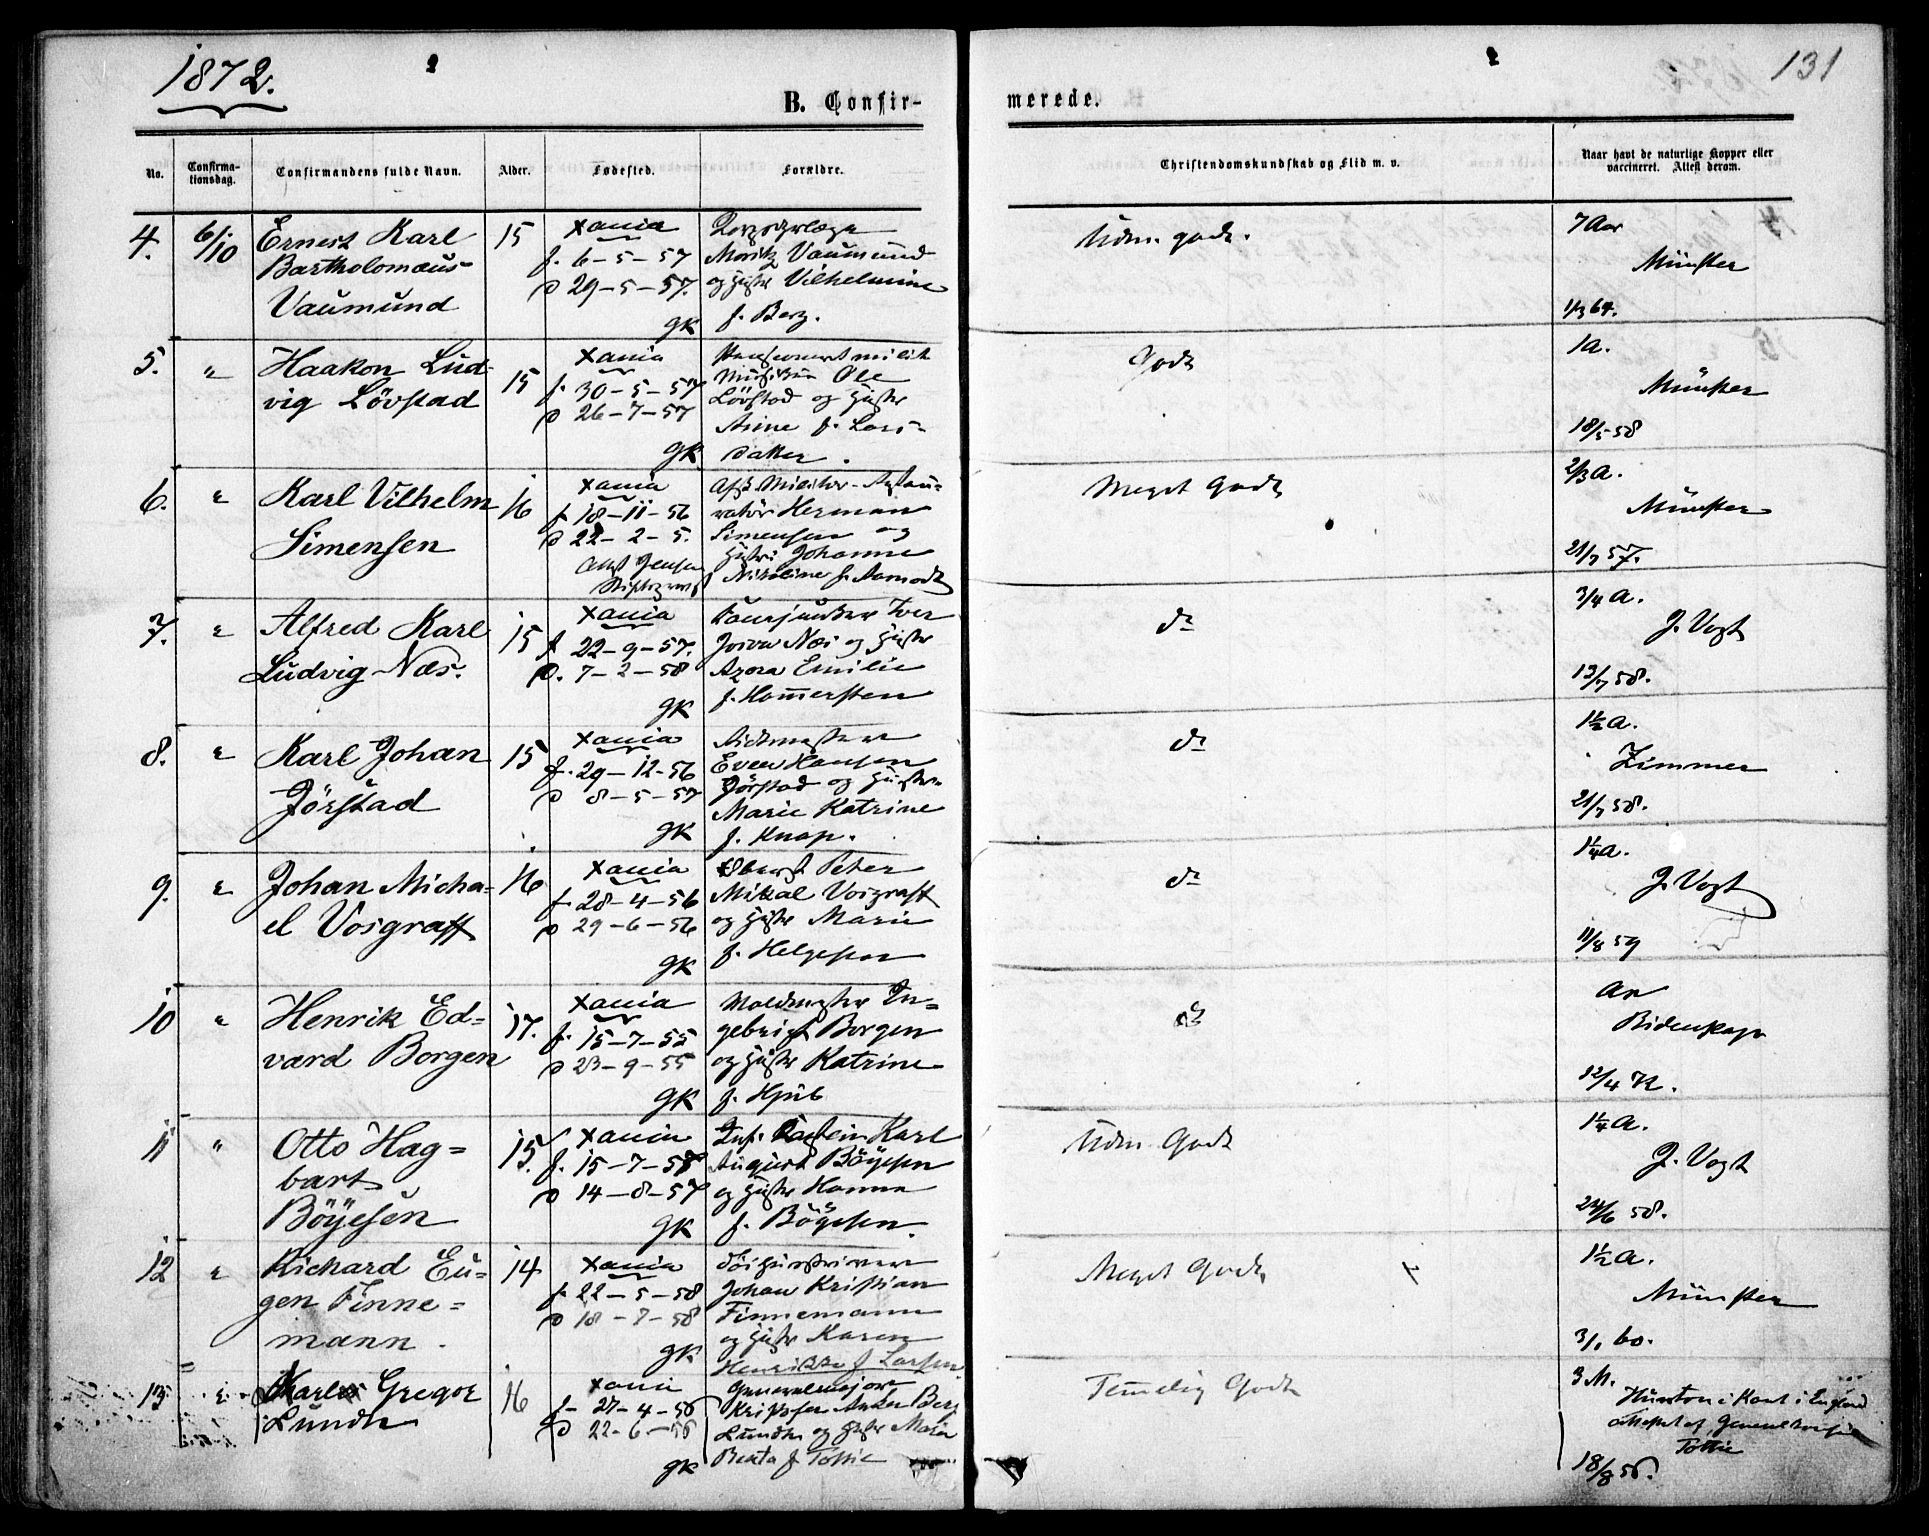 1872.
131
B. Confir-
merede.
No.
Confirma-
tionsdag.
Confirmandens fulde Navn.
Alder.
Fødested.
Forældre.
Christendomskundskab og Flid m. v.
Naar havt de naturlige Kopper eller
vaccineret. Attest derom.
4. 6/10 Ernest Karl
Bartholomæus
Vaumund
15
Xania
f. 6-5-57
D 29-5-57.
GK
Moritz Vaumund
og Hustr Vilhelmine
f. Berg.
Udm. godt.
7 Aar
Münster
1/3 64.
5. " Haakon Lud-
vig Lövstad
15
Xania
f. 30-5-57
D 26-7-57
GK
Pensioneret milit
Musiker Ole
Lövstad og Hustr
Anne f. Lars-
saker.
Godt
1 a.
Münster
18/5 58
6. " Karl Vilhelm
Simensen
16
Xania
f 18-11-56
D 22-2-5.
Attest Jensen
Herman
Simensen og
Hustr Johanne
Nikoline f. Aamodt
Meget Godt
2/3 a.
Münster
21/7 57.
7. " Alfred Karl
Ludvig Næs.
15
Xania
f. 22-9-57.
D. 7-2-58
GK
Iver
Næs og Hustr
Azora Emilie
f. Hammersten
do
3/4 a.
J. Vogt
13/7 58.
8. " Karl Johan
Jörstad
15
Xania
f. 29-12-56
D 8-5-57
GK
Even Hansen
Jörstad og Hustr
Marie Katrine
f. Knap.
do
1½ a.
Zimmer
21/7 58.
9. " Johan Micha-
el Vosgraff
16
Xania
f 28-4-56
D 29-6-56
GK
Oberst Peter
Mikal Vosgraff
og Hustr Marie
f. Helgesen
do
1¼ a.
J. Vogt
11/8 59
10 " Henrik Ed-
vard Borgen
17.
Xania
f. 15-7-55
D 23-9-55
GK
In-
gebrigt Borgen
og Hustr Katrine
f. Hjub
do
12/4 72.
11 " Otto Hag-
bart
Böyesen
15.
Xania
f. 15-7-58
D 14-8-57
GK
Inf. Kaptein Karl
August Böyesen
og Hustr Hanna
f. Böyesen.
Udm. Godt
1¼ a.
J. Vogt
24/6 58.
12 " Richard Eu-
gen Finne-
mann.
14
Xania
f 22-5-58
D 18-7-58
GK
Johan Kristian
Finnemann
og Hustr Karen
Henrikke f Larsen
Meget Godt
1½ a.
Münster
60.
13 " Karl Gregor
Lundh
16
Xania
f- 27-4-56
D 22-6-56
GK
Generalmajor
Kristofer Anker Berg
Lundh og Hustr Maria
Berta f Tottie
Temmelig Godt
3 M.
i Kent i England
attesteret af
Tottie
18/8 56.